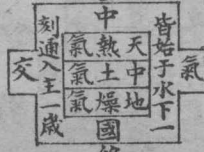 中
皆始于水下一
氣
天中地
熱土燥
氣氣氣
國
刻通入主一歲
交